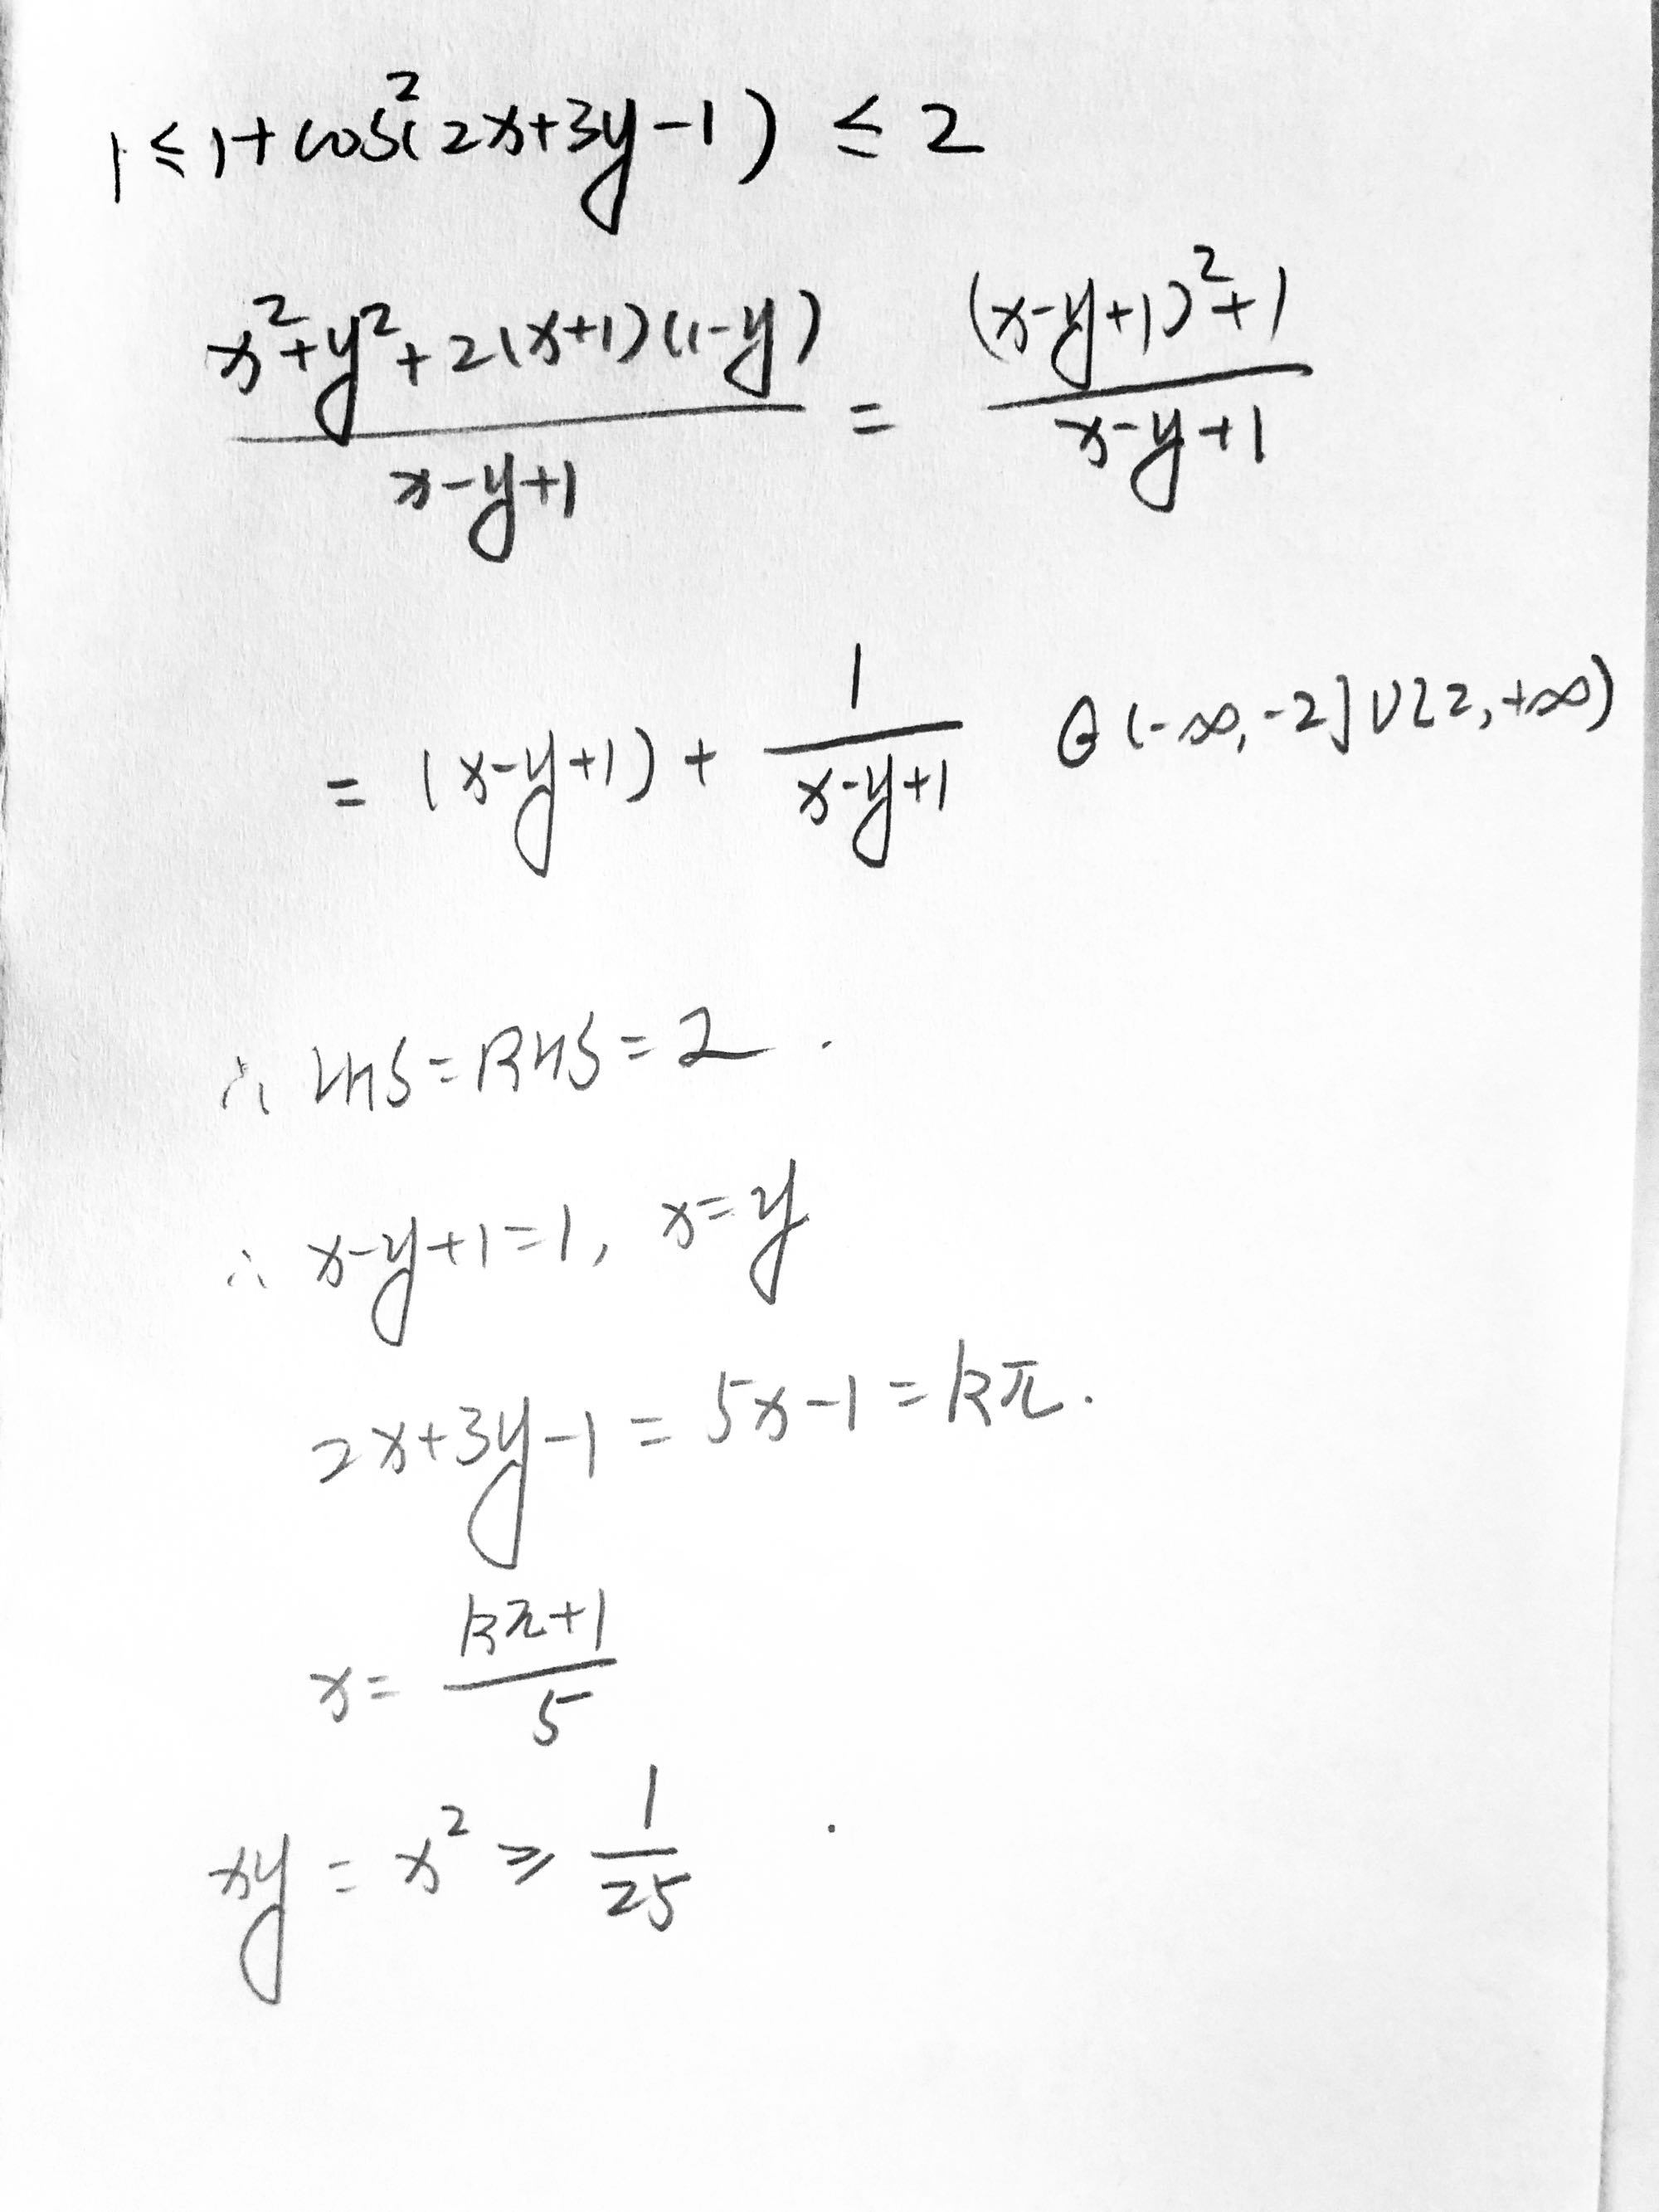 1 ≤ 1 + cos²(2x+3y-1) ≤ 2
(x²+y²+2(x+1)(1-y))/(x-y+1) = ((x-y+1)²+1)/(x-y+1)
= (x-y+1) + 1/(x-y+1) ∈ (-∞,-2] ∪ [2,+∞)
∴ LHS = RHS = 2.
∴ x-y+1=1, x=y
2x+3y-1 = 5x-1 = kπ.
x = (kπ+1)/5
xy = x² ≥ 1/25.